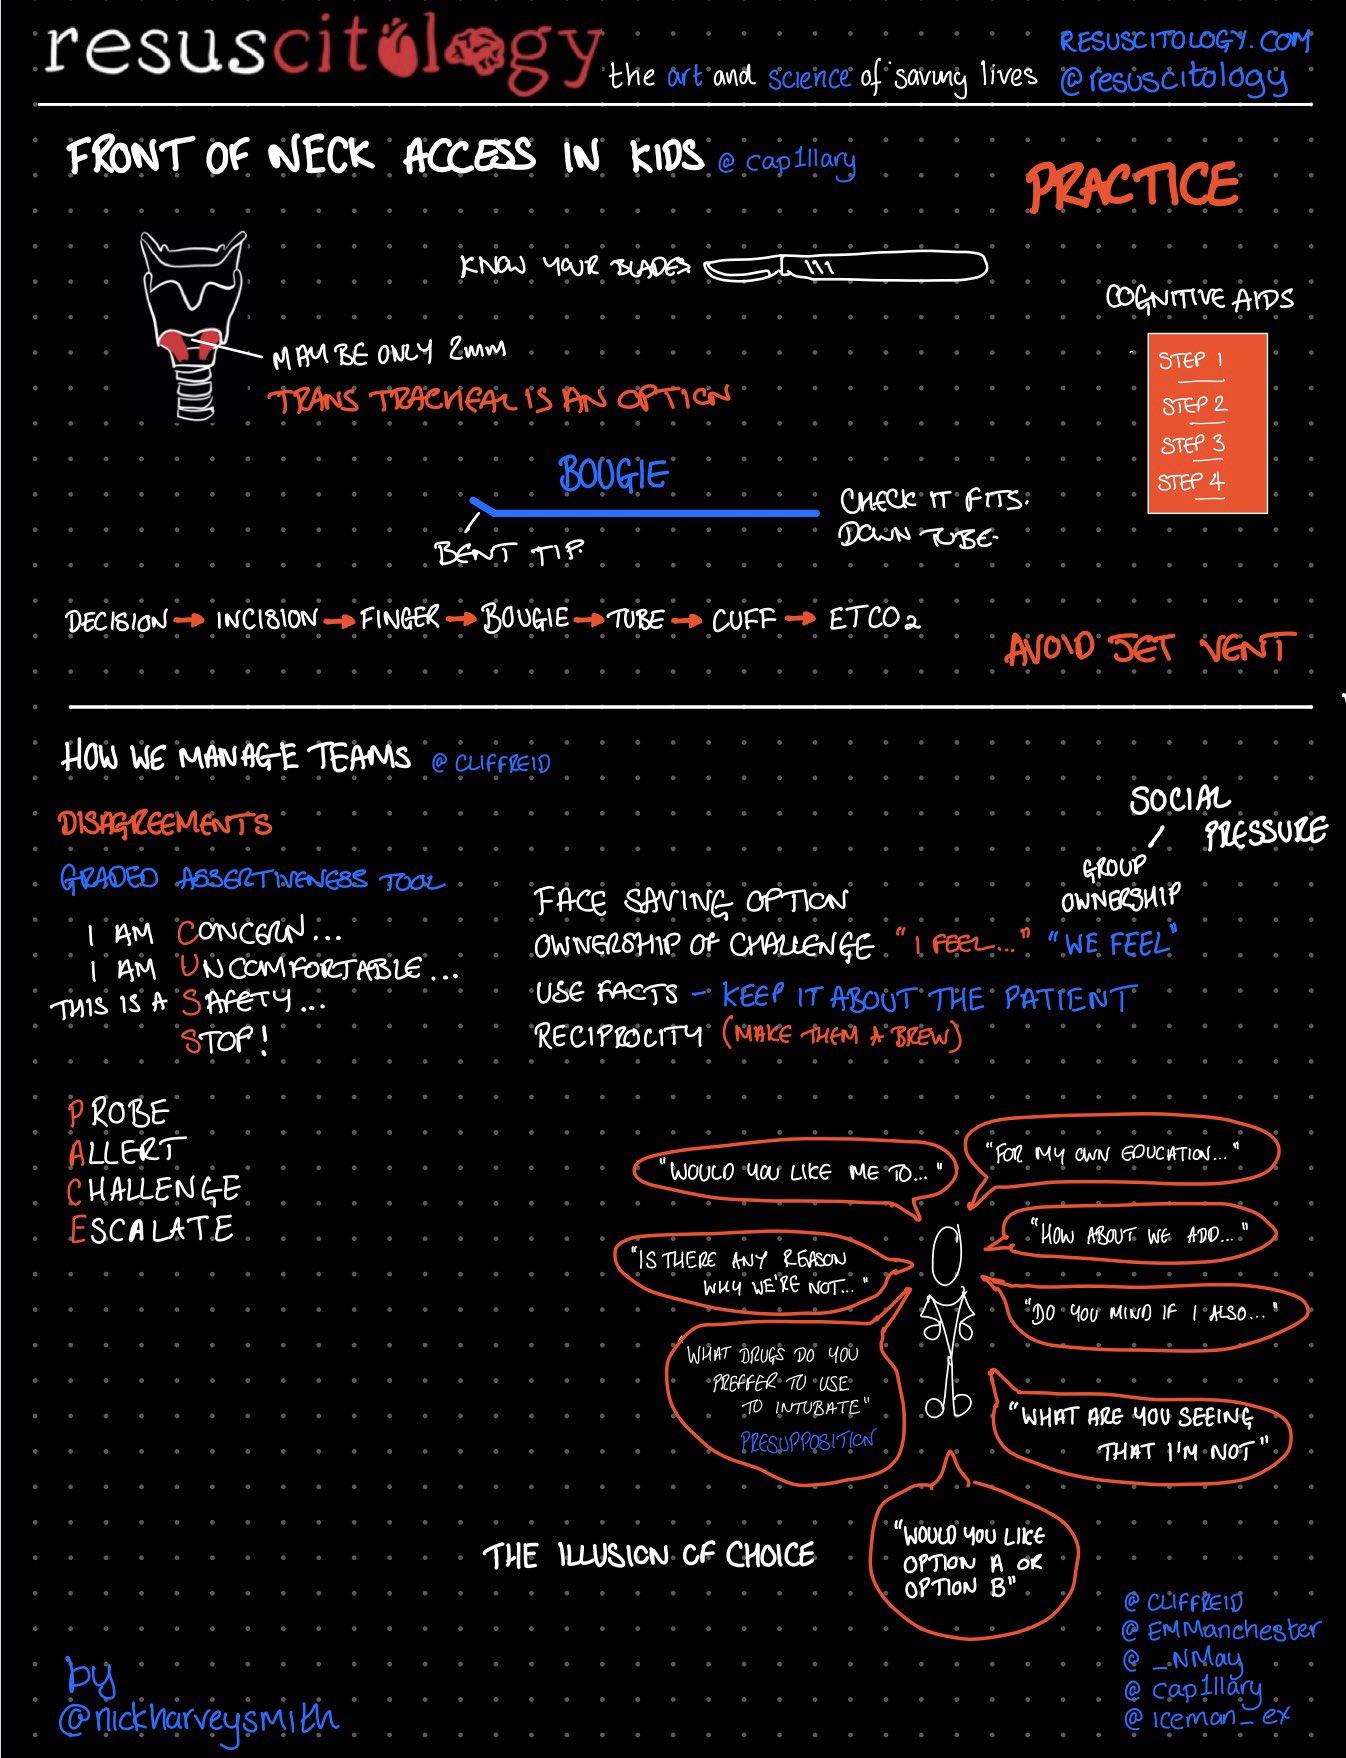 resuscitology
the art and science of saving lives
RESUSCITOLOGY.COM
@resuscitology
FRONT OF NECK ACCESS IN KIDS @cap1llary
PRACTICE
KNOW YOUR BLADES
MAY BE ONLY 2mm
TRANS TRACHEAL IS AN OPTION
COGNITIVE AIDS
STEP 1
STEP 2
STEP 3
STEP 4
BOUGIE
BENT TIP
CHECK IT FITS.
DOWN TUBE.
DECISION → INCISION → FINGER → BOUGIE → TUBE → CUFF → ETCO2
AVOID JET VENT
HOW WE MANAGE TEAMS @CLIFFREID
DISAGREEMENTS
GRADED ASSERTIVENESS TOOL
I AM CONCERN...
I AM UNCOMFORTABLE...
THIS IS A SAFETY...
STOP!
PROBE
ALLERT
CHALLENGE
ESCALATE
SOCIAL
PRESSURE
GROUP
OWNERSHIP
FACE SAVING OPTION
OWNERSHIP OF CHALLENGE "I FEEL..." "WE FEEL"
USE FACTS - KEEP IT ABOUT THE PATIENT
RECIPROCITY (MAKE THEM A BREW)
"WOULD YOU LIKE ME TO..."
"FOR MY OWN EDUCATION..."
"IS THERE ANY REASON
WHY WE'RE NOT..."
"HOW ABOUT WE ADD..."
"DO YOU MIND IF I ALSO..."
"WHAT DRUGS DO YOU
PREFFER TO USE
TO INTUBATE"
PRESUPPOSITION
"WHAT ARE YOU SEEING
THAT I'M NOT"
THE ILLUSION OF CHOICE
"WOULD YOU LIKE
OPTION A OR
OPTION B"
@CLIFFREID
@EMManchester
@_NMay
@cap1llary
@iceman_ex
by
@nickharveysmith